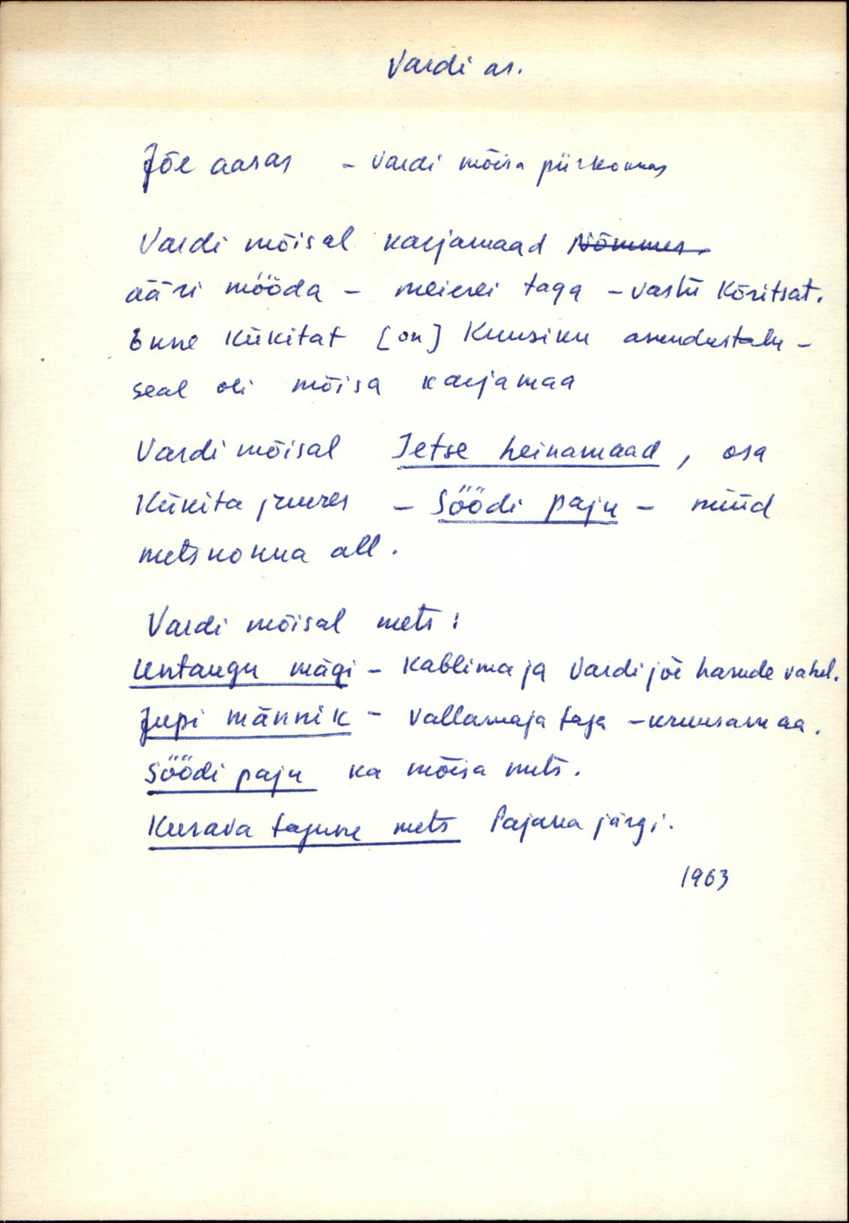 Vardi as.
Jõe aasas - Vardi mõisa piirkonnas
Vardi mõisal karjamaad Nõmmes
ääri mööda - meierei taga - vastu Kõritsat.
Enne Kükitat [on] Kuusiku asundustalu -
seal oli mõisa karjamaa
Vardi mõisal Jetse heinamaad, osa
Kükita juures - Söödi paju - nüüd
metskonna all.
Vardi mõisal mets:
mägi - Kablima ja Vardi jõe harude vahel.
Jupi männik - Vallamaja taga - kruusamaa.
Söödi paju ka mõisa mets.
tagune mets Pajaka järgi.
1963